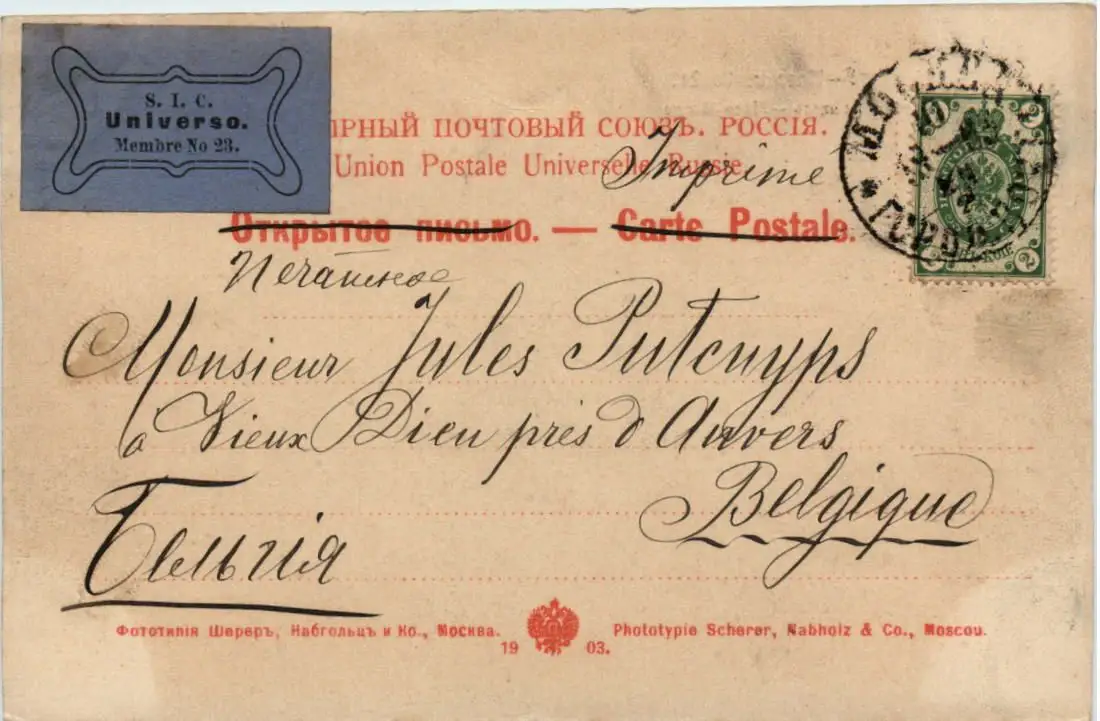 S. I. C.
Universo.
Membre No 23.
ИРНЫЙ ПОЧТОВЫЙ СОЮЗЪ. РОССІЯ.
Union Postale Universelle Russie
Imprimé
Открытое письмо. — Carte Postale.
Печатное
МОСКВА
2 2
2
Monsieur Jules Putcuyps
à Vieux Dieu près d'Anvers
Belgique
Бельгія
Фототипія Шереръ, Набгольцъ и Ко., Москва.
Phototypie Scherer, Nabholz & Co., Moscou.
1903.